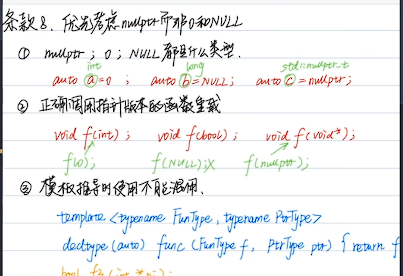 条款8、优先考虑nullptr而非0和NULL
① nullptr；0；NULL都是什么类型.
int long std::nullptr_t
auto a=0 ; auto b=NULL; auto c=nullptr;
② 正确调用指针版本的函数重载
void f(int); void f(bool); void f(void*);
f(0); f(NULL);X f(nullptr);
③ 模板推导时使用不能混用、
template <typename FunType, typename PtrType>
decltype(auto) func (FunType f, PtrType ptr) { return f